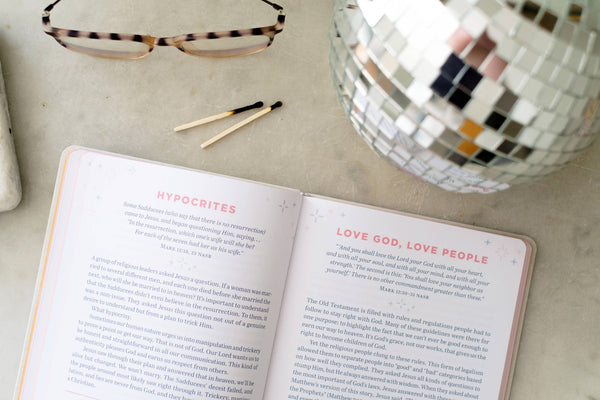 HYPOCRITES
Some Sadducees (who say that there is no resurrection)
came to Jesus, and began questioning Him, saying, ...
"In the resurrection, which one's wife will she be?
For each of the seven had her as his wife."
A group of religious leaders asked Jesus a question. If a woman was mar-
ried to several different men, and each one died before she married the
next, who will she be married to in heaven? It's important to understand
that the Sadducees didn't even believe in the resurrection. To them, it
was a non-issue. They asked Jesus this question not out of a genuine
desire to understand but from a place to trick Him.
What hypocrisy.
Sometimes our human nature urges us into manipulation and trickery
to prove a point or get our way. That is not of God. Our Lord wants us to
be honest and straightforward in all our communication. This kind of
authenticity pleases God and earns us respect from others.
Jesus saw through their plan and answered that in heaven, we'll be
alive but changed. We won't marry. The Sadducees' deceit failed, and
the people around most likely saw right through it. Trickery,
lation, and lies are never from God, and they
a Christian.
LOVE GOD, LOVE PEOPLE
"And you shall love the Lord your God with all your heart,
and with all your soul, and with all your mind, and with all your
strength.' The second is this: 'You shall love your neighbor as
yourself.' There is no other commandment greater than these."
The Old Testament is filled with rules and regulations people had to
follow to stay right with God. Many of these guidelines were there for
one purpose: to highlight the fact that we can't ever be good enough to
earn our way to heaven. It's God's grace, not our works, that gives us the
right to become children of God.
Yet the religious people clung to these rules. This form of legalism
allowed them to separate people into "good" and "bad" categories based
on how well they complied. They asked Jesus all kinds of questions to
stump Him, but He always answered with wisdom. When they asked about
the most important of God's laws, Jesus answered with these
Matthew's version of this story, Jesus said,
the Prophets" (Matthew